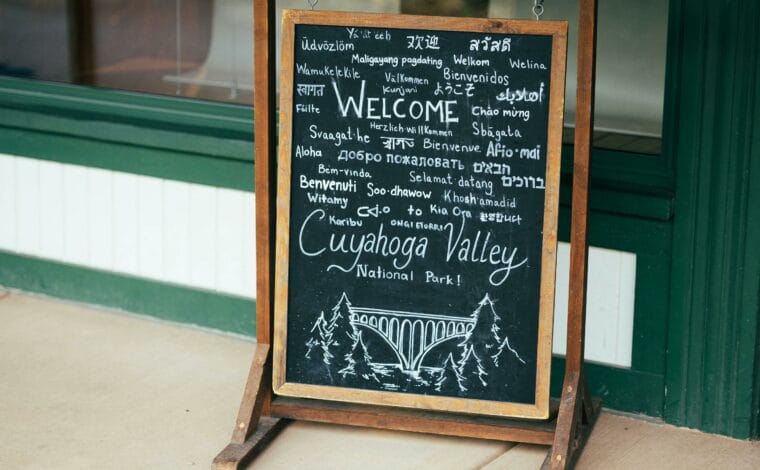 Yá'át'ééh
Üdvözlöm 欢迎 สวัสดี
Maligayang pagdating Welkom Welina
Wamukelekile Välkommen Bienvenidos
स्वागत Kunjani ようこそ أهلاً بك
Fülte WELCOME Chào mừng
Herzlich willkommen Sbàgata
Svaagat·he स्वागत Bienvenue Afio·mai
Aloha добро пожаловать הבאים ברוכים
Bem·vinda Selamat datang
Benvenuti Soo·dhawow Khoshamadid
Witamy to Kia Ora
Karibu ONGI ETORRI
Cuyahoga Valley
National Park!